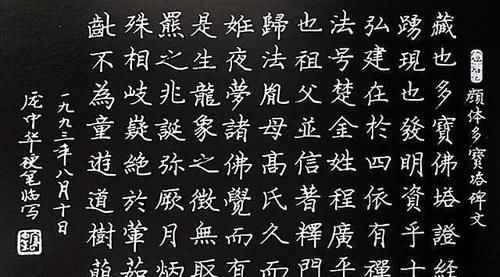 顔体多寶塔碑文
藏也多寶佛塔證經
踴現也發明資乎十
弘建在於四依有禪
法号楚金姓程廣平
也祖父並信著釋門
歸法胤母高氏久而
姙夜夢諸佛覺而有
是生龍象之徵無取
羆之兆誕弥厥月炳
殊相岐嶷絕於葷茹
齔不為童遊道樹萌
一九九三年八月十日
庞中华硬笔临写